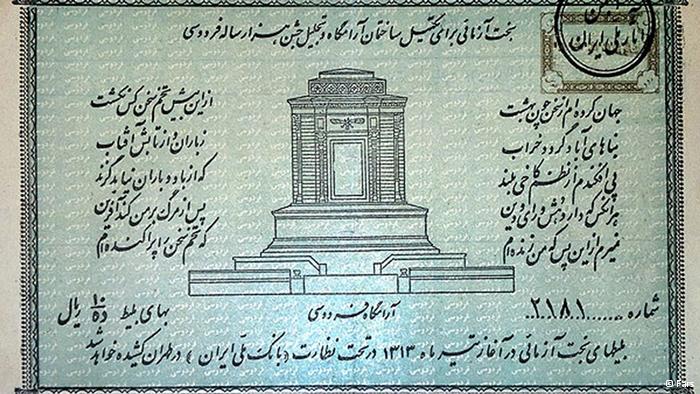 بخت آزمائی برای تکمیل ساختمان آرامگاه و تجلیل جشن هزار ساله فردوسی
انجمن
آثار ملی ایران
جهان کرده‌ام از سخن چون بهشت از این بیش تخم سخن کس نکشت
بناهای آباد گردد خراب ز باران و از تابش آفتاب
پی افکندم از نظم کاخی بلند که از باد و باران نیابد گزند
هر آنکس که دارد هش و رای و دین پس از مرگ بر من کند آفرین
نمیرم از این پس که من زنده‌ام که تخم سخن را پراکنده‌ام
آرامگاه فردوسی
شماره ......۲۱۸۱۰
بهای بلیط ۱۰ ده ریال
بلیطهای بخت آزمائی در آغاز تیر ماه ۱۳۱۳ در تحت نظارت (بانک ملی ایران) در طهران کشیده خواهد شد
© Fars